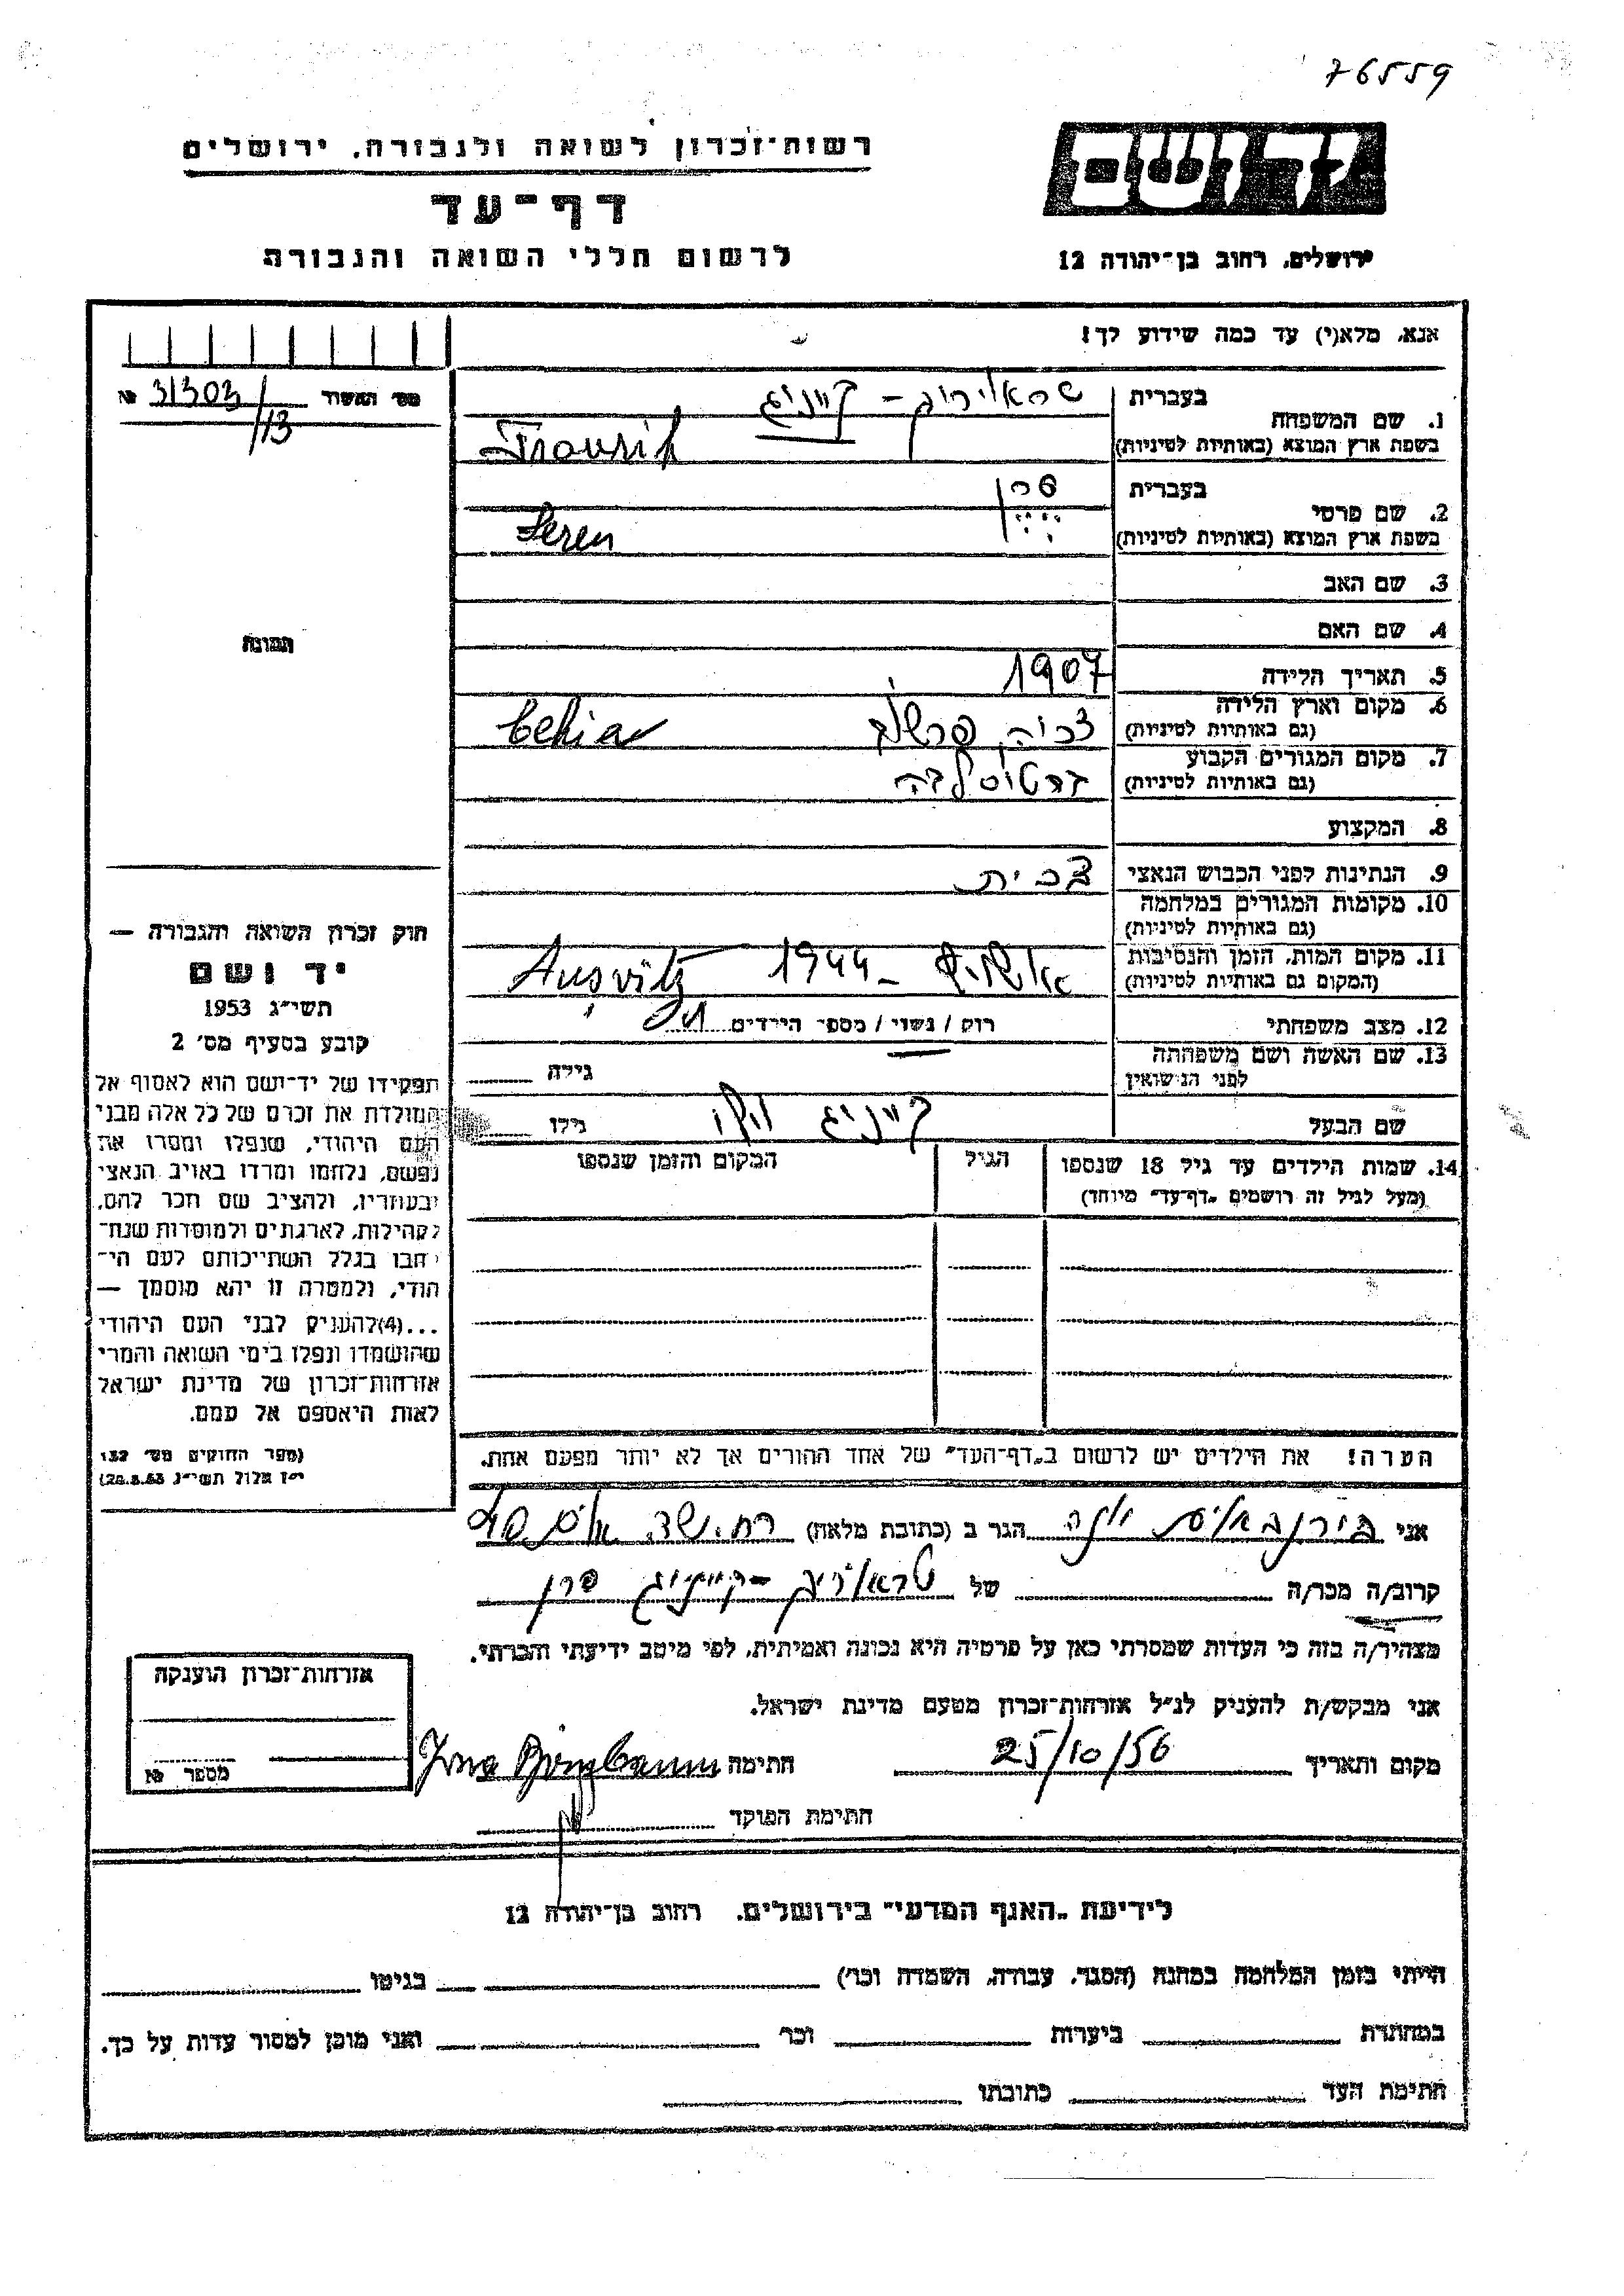 76559
רשות־זכרון לשואה ולגבורה, ירושלים
דף־עד
לרשום חללי השואה והגבורה
ירושלים, רחוב בן־יהודה 12
אנא, מלא(י) עד כמה שידוע לך!
מס' האשור 31303/13 №
1. שם המשפחה בעברית קייניג
בשפת ארץ המוצא (באותיות לטיניות) Traurik
2. שם פרטי בעברית סרן
בשפת ארץ המוצא (באותיות לטיניות) Seren
3. שם האב
4. שם האם
תמונה
5. תאריך הלידה 1907
6. מקום וארץ הלידה
(גם באותיות לטיניות) צכיה Cehia
7. מקום המגורים הקבוע
(גם באותיות לטיניות) ברטוסלבה
8. המקצוע
9. הנתינות לפני הכבוש הנאצי צכית
10. מקומות המגורים במלחמה
(גם באותיות לטיניות)
11. מקום המות, הזמן והנסיבות
(המקום גם באותיות לטיניות) אושויץ – 1944 Ausvitz
12. מצב משפחתי רווק / נשוי / מספר הילדים
13. שם האשה ושם משפחתה
לפני הנישואין גילה
שם הבעל קייניג גילו
14. שמות הילדים עד גיל 18 שנספו הגיל המקום והזמן שנספו
(מעל לגיל זה רושמים "דף־עד" מיוחד)
חוק זכרון השואה והגבורה —
יד ושם
תשי"ג 1953
קובע בסעיף מס' 2
תפקידו של יד־ושם הוא לאסוף אל
המולדת את זכרם של כל אלה מבני
העם היהודי, שנפלו ומסרו את
נפשם, נלחמו ומרדו באויב הנאצי
ובעוזריו, ולהציב שם וזכר להם,
לקהילות, לארגונים ולמוסדות שנח־
רבו בגלל השתייכותם לעם הי־
הודי, ולמטרה זו יהא מוסמך —
...(4)להעניק לבני העם היהודי
שהושמדו ונפלו בימי השואה והמרי
אזרחות־זכרון של מדינת ישראל
לאות היאספם אל עמם.
(ספר החוקים מס' 132
י"ז אלול תשי"ג 28.8.53)
הערה! את הילדים יש לרשום ב"דף־העד" של אחד ההורים אך לא יותר מפעם אחת.
אני בירנבאום יונה הגר ב (כתובת מלאה)
קרוב/ה מכר/ה של טראוריג – קייניג סרן
מצהיר/ה בזה כי העדות שמסרתי כאן על פרטיה היא נכונה ואמיתית, לפי מיטב ידיעתי והכרתי.
אני מבקש/ת להעניק לנ"ל אזרחות־זכרון מטעם מדינת ישראל.
מקום ותאריך 25/10/56 חתימה
חתימת הפוקד
אזרחות־זכרון הוענקה
מספר №
לידיעת "האגף המדעי" בירושלים, רחוב בן־יהודה 12
הייתי בזמן המלחמה במחנה (הסגר, עבודה, השמדה וכו') בגיטו
במחתרת ביערות וכו' ואני מוכן למסור עדות על כך.
חתימת העד כתובתו